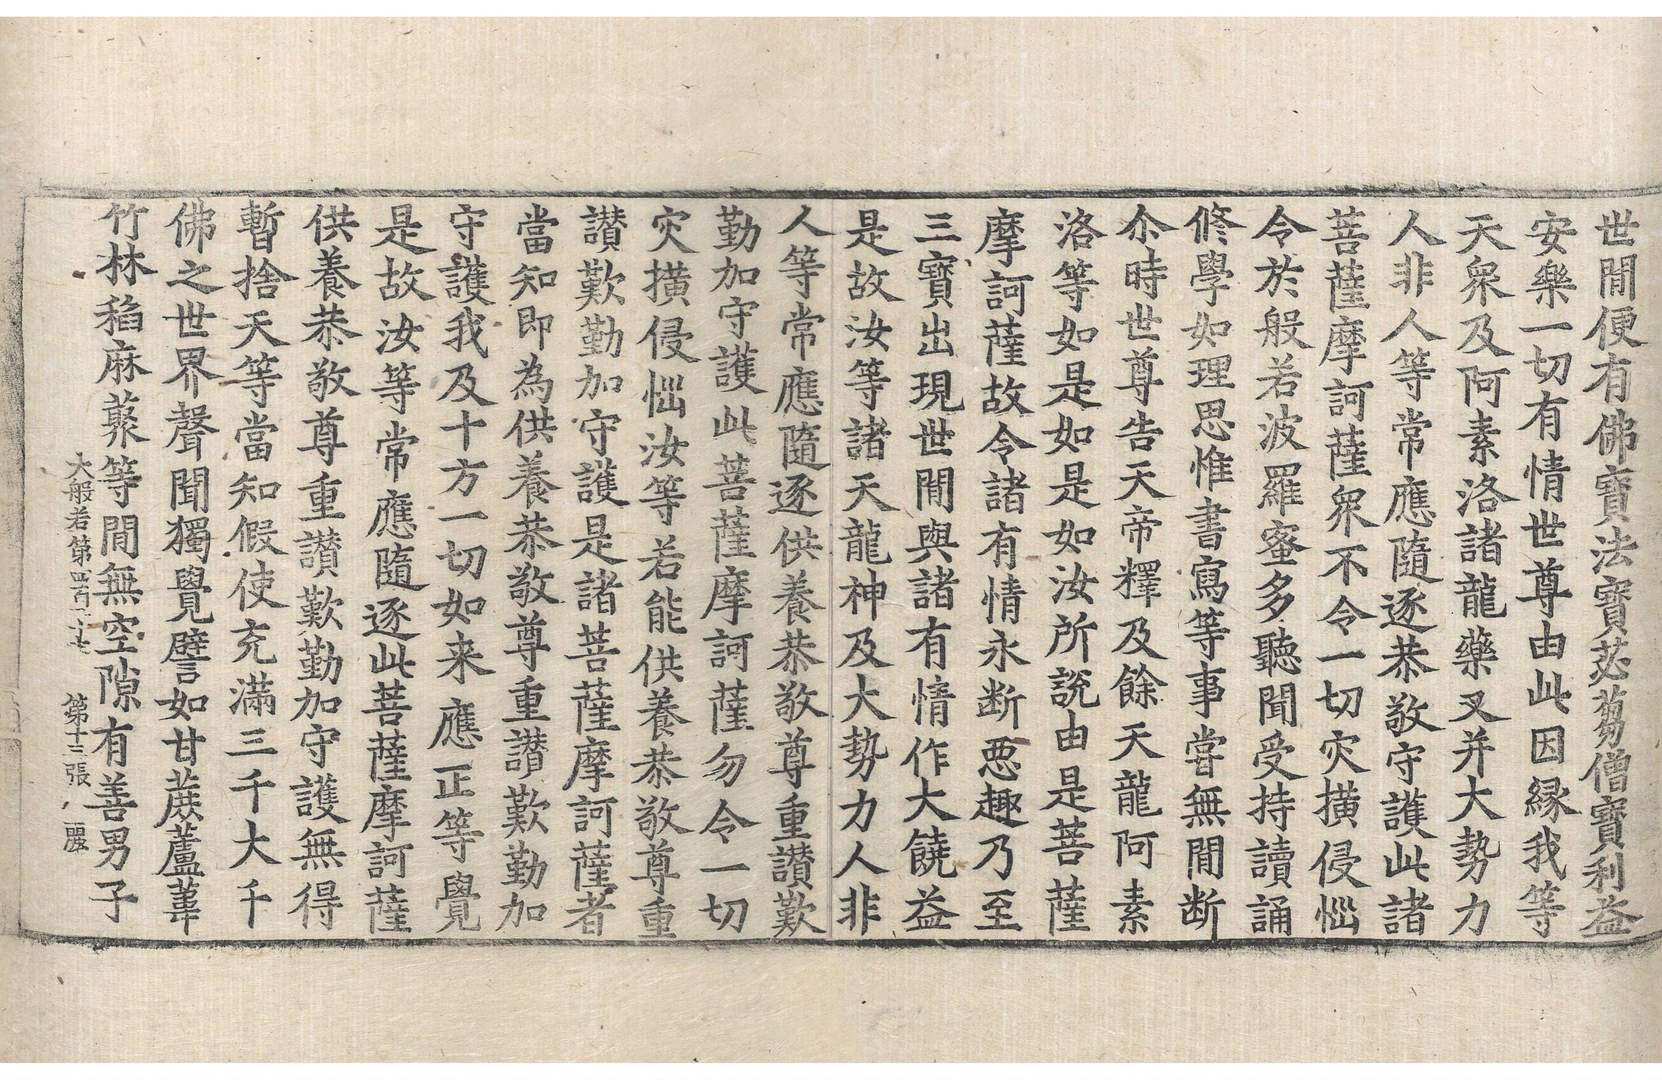 世間便有佛寶法寶苾芻僧寶利益
安樂一切有情世尊由此因縁我等
天衆及阿素洛諸龍藥叉并大勢力
人非人等常應隨逐恭敬守護此諸
菩薩摩訶薩衆不令一切灾撗侵惱
令於般若波羅蜜多聽聞受持讀誦
修學如理思惟書寫等事甞無間斷
尒時世尊告天帝釋及餘天龍阿素
洛等如是如是如汝所說由是菩薩
摩訶薩故令諸有情永斷惡趣乃至
三寶出現世間與諸有情作大饒益
是故汝等諸天龍神及大勢力人非
人等常應隨逐供養恭敬尊重讃歎
勤加守護此菩薩摩訶薩勿令一切
灾撗侵惱汝等若能供養恭敬尊重
讃歎勤加守護是諸菩薩摩訶薩者
當知即為供養恭敬尊重讃歎勤加
守護我及十方一切如来應正等覺
是故汝等常應隨逐此菩薩摩訶薩
供養恭敬尊重讃歎勤加守護無得
暫捨天等當知假使充滿三千大千
佛之世界聲聞獨覺譬如甘蔗蘆葦
竹林稻麻䕺等間無空隙有善男子
大般若第四百二十七 第十三張 麗